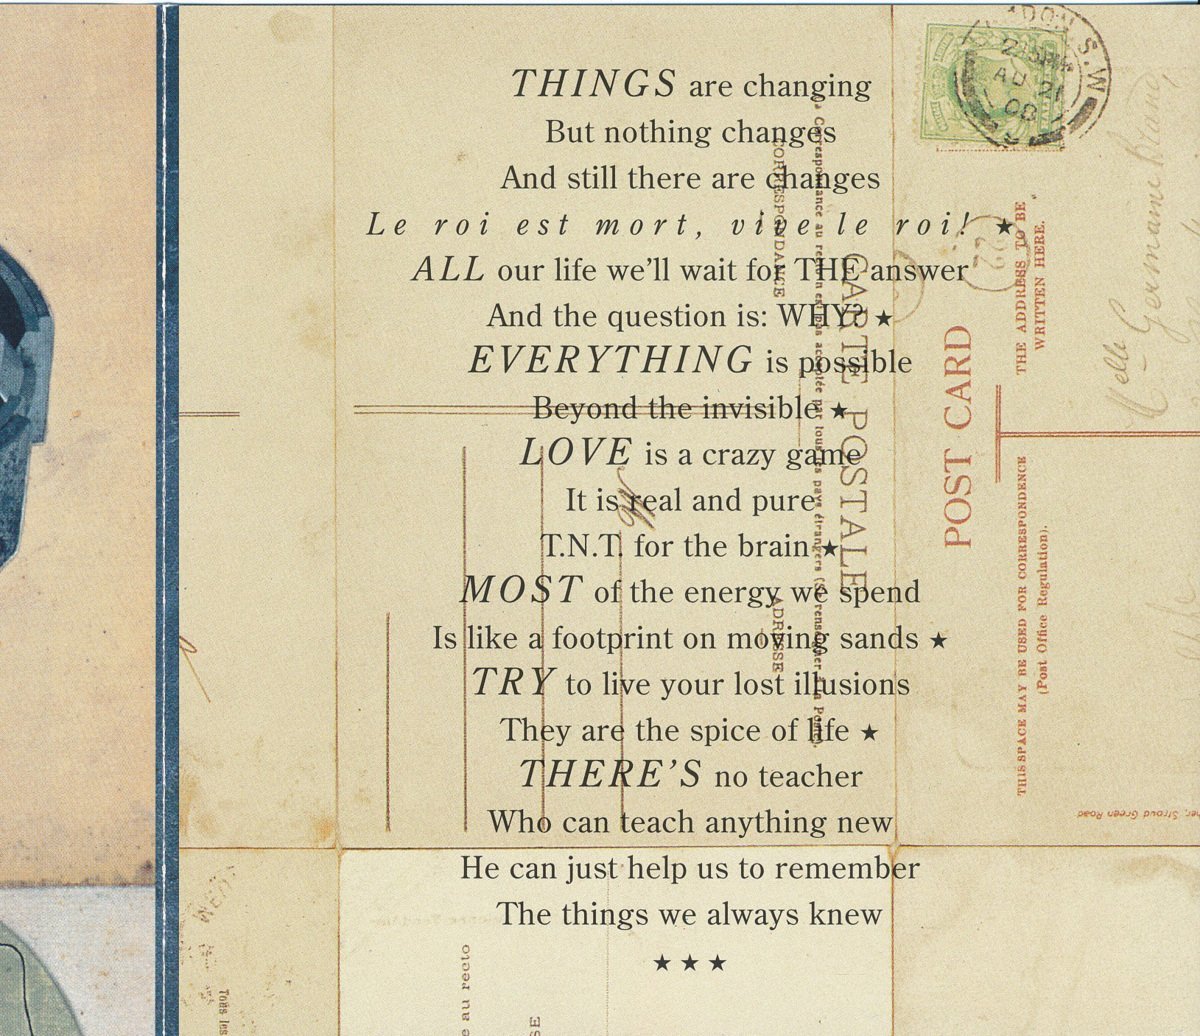 THINGS are changing
But nothing changes
And still there are changes
Le roi est mort, vive le roi! ★
ALL our life we’ll wait for THE answer
And the question is: WHY? ★
EVERYTHING is possible
Beyond the invisible ★
LOVE is a crazy game
It is real and pure
T.N.T. for the brain ★
MOST of the energy we spend
Is like a footprint on moving sands ★
TRY to live your lost illusions
They are the spice of life ★
THERE’S no teacher
Who can teach anything new
He can just help us to remember
The things we always knew
★ ★ ★
CORRESPONDANCE
ADRESSE
CARTE POSTALE
POST CARD
THE ADDRESS TO BE
WRITTEN HERE.
THIS SPACE MAY BE USED FOR CORRESPONDENCE
(Post Office Regulation).
Stroud Green Road
S.W
AU 21
08
22
Melle Germaine
e au recto
Tous les